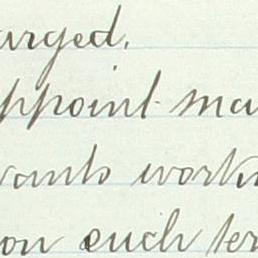 arged.
ppoint ma
vants work
on such ter